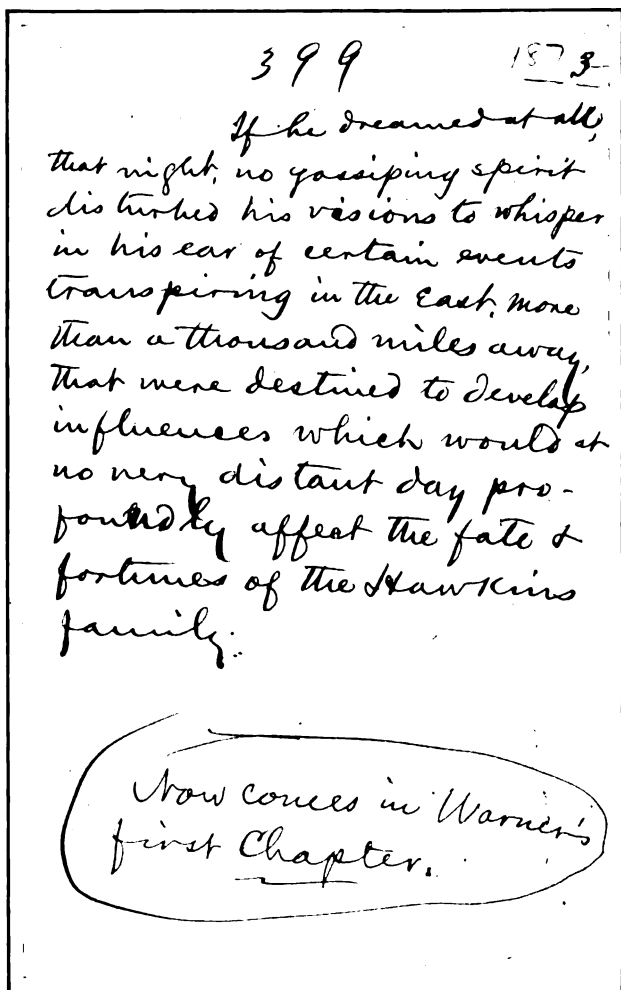 399 1873
If he dreamed at all,
that night, no gossiping spirit
disturbed his visions to whisper
in his ear of certain events
transpiring in the East, more
than a thousand miles away,
that were destined to develop
influences which would at
no very distant day pro-
foundly affect the fate &
fortunes of the Hawkins
family.
Now comes in Warner's
first Chapter.